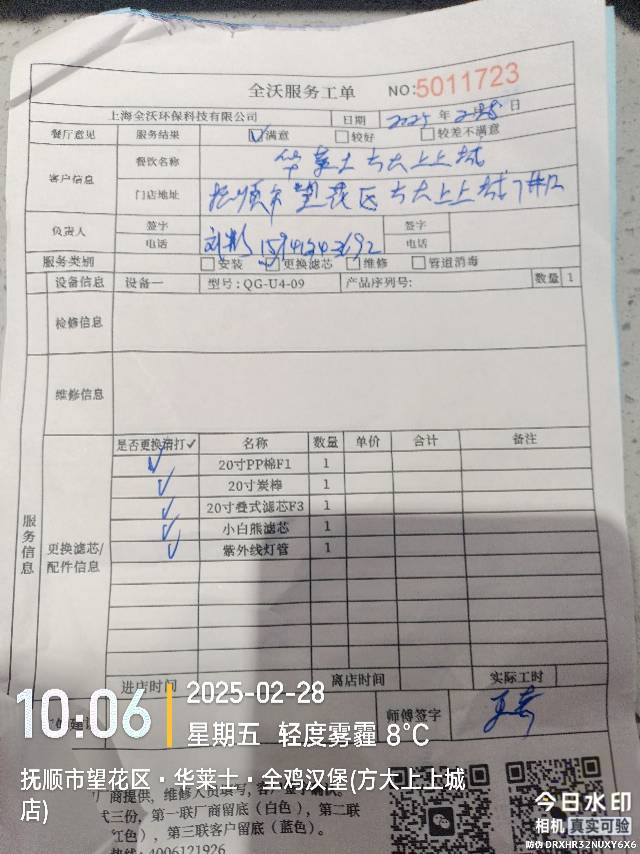 全沃服务工单 NO:5011723
上海全沃环保科技有限公司 日期 2025年2月28日
餐厅意见 服务结果 ☑满意 □较好 □较差不满意
客户信息 餐饮名称 华莱士方大上上城
门店地址 抚顺市望花区方大上上城
负责人 签字 签字
电话 电话
服务类别 □安装 ☑更换滤芯 □维修 □管道消毒
设备信息 设备一 型号:QG-U4-09 产品序列号: 数量 1
检修信息
维修信息
服务信息
更换滤芯/配件信息
是否更换请打✓ 名称 数量 单价 合计 备注
✓ 20寸PP棉F1 1
✓ 20寸炭棒 1
✓ 20寸叠式滤芯F3 1
✓ 小白熊滤芯 1
✓ 紫外线灯管 1
进店时间 离店时间 实际工时
师傅签字
10:06 2025-02-28
星期五 轻度雾霾 8℃
抚顺市望花区·华莱士·全鸡汉堡(方大上上城店)
厂商提供，维修人员填写，客
式三份，第一联厂商留底（白色），第二联
红色），第三联客户留底（蓝色）。
热线：4006121926
今日水印
相机 真实可验
防伪 DRXHR32NUXY6X6